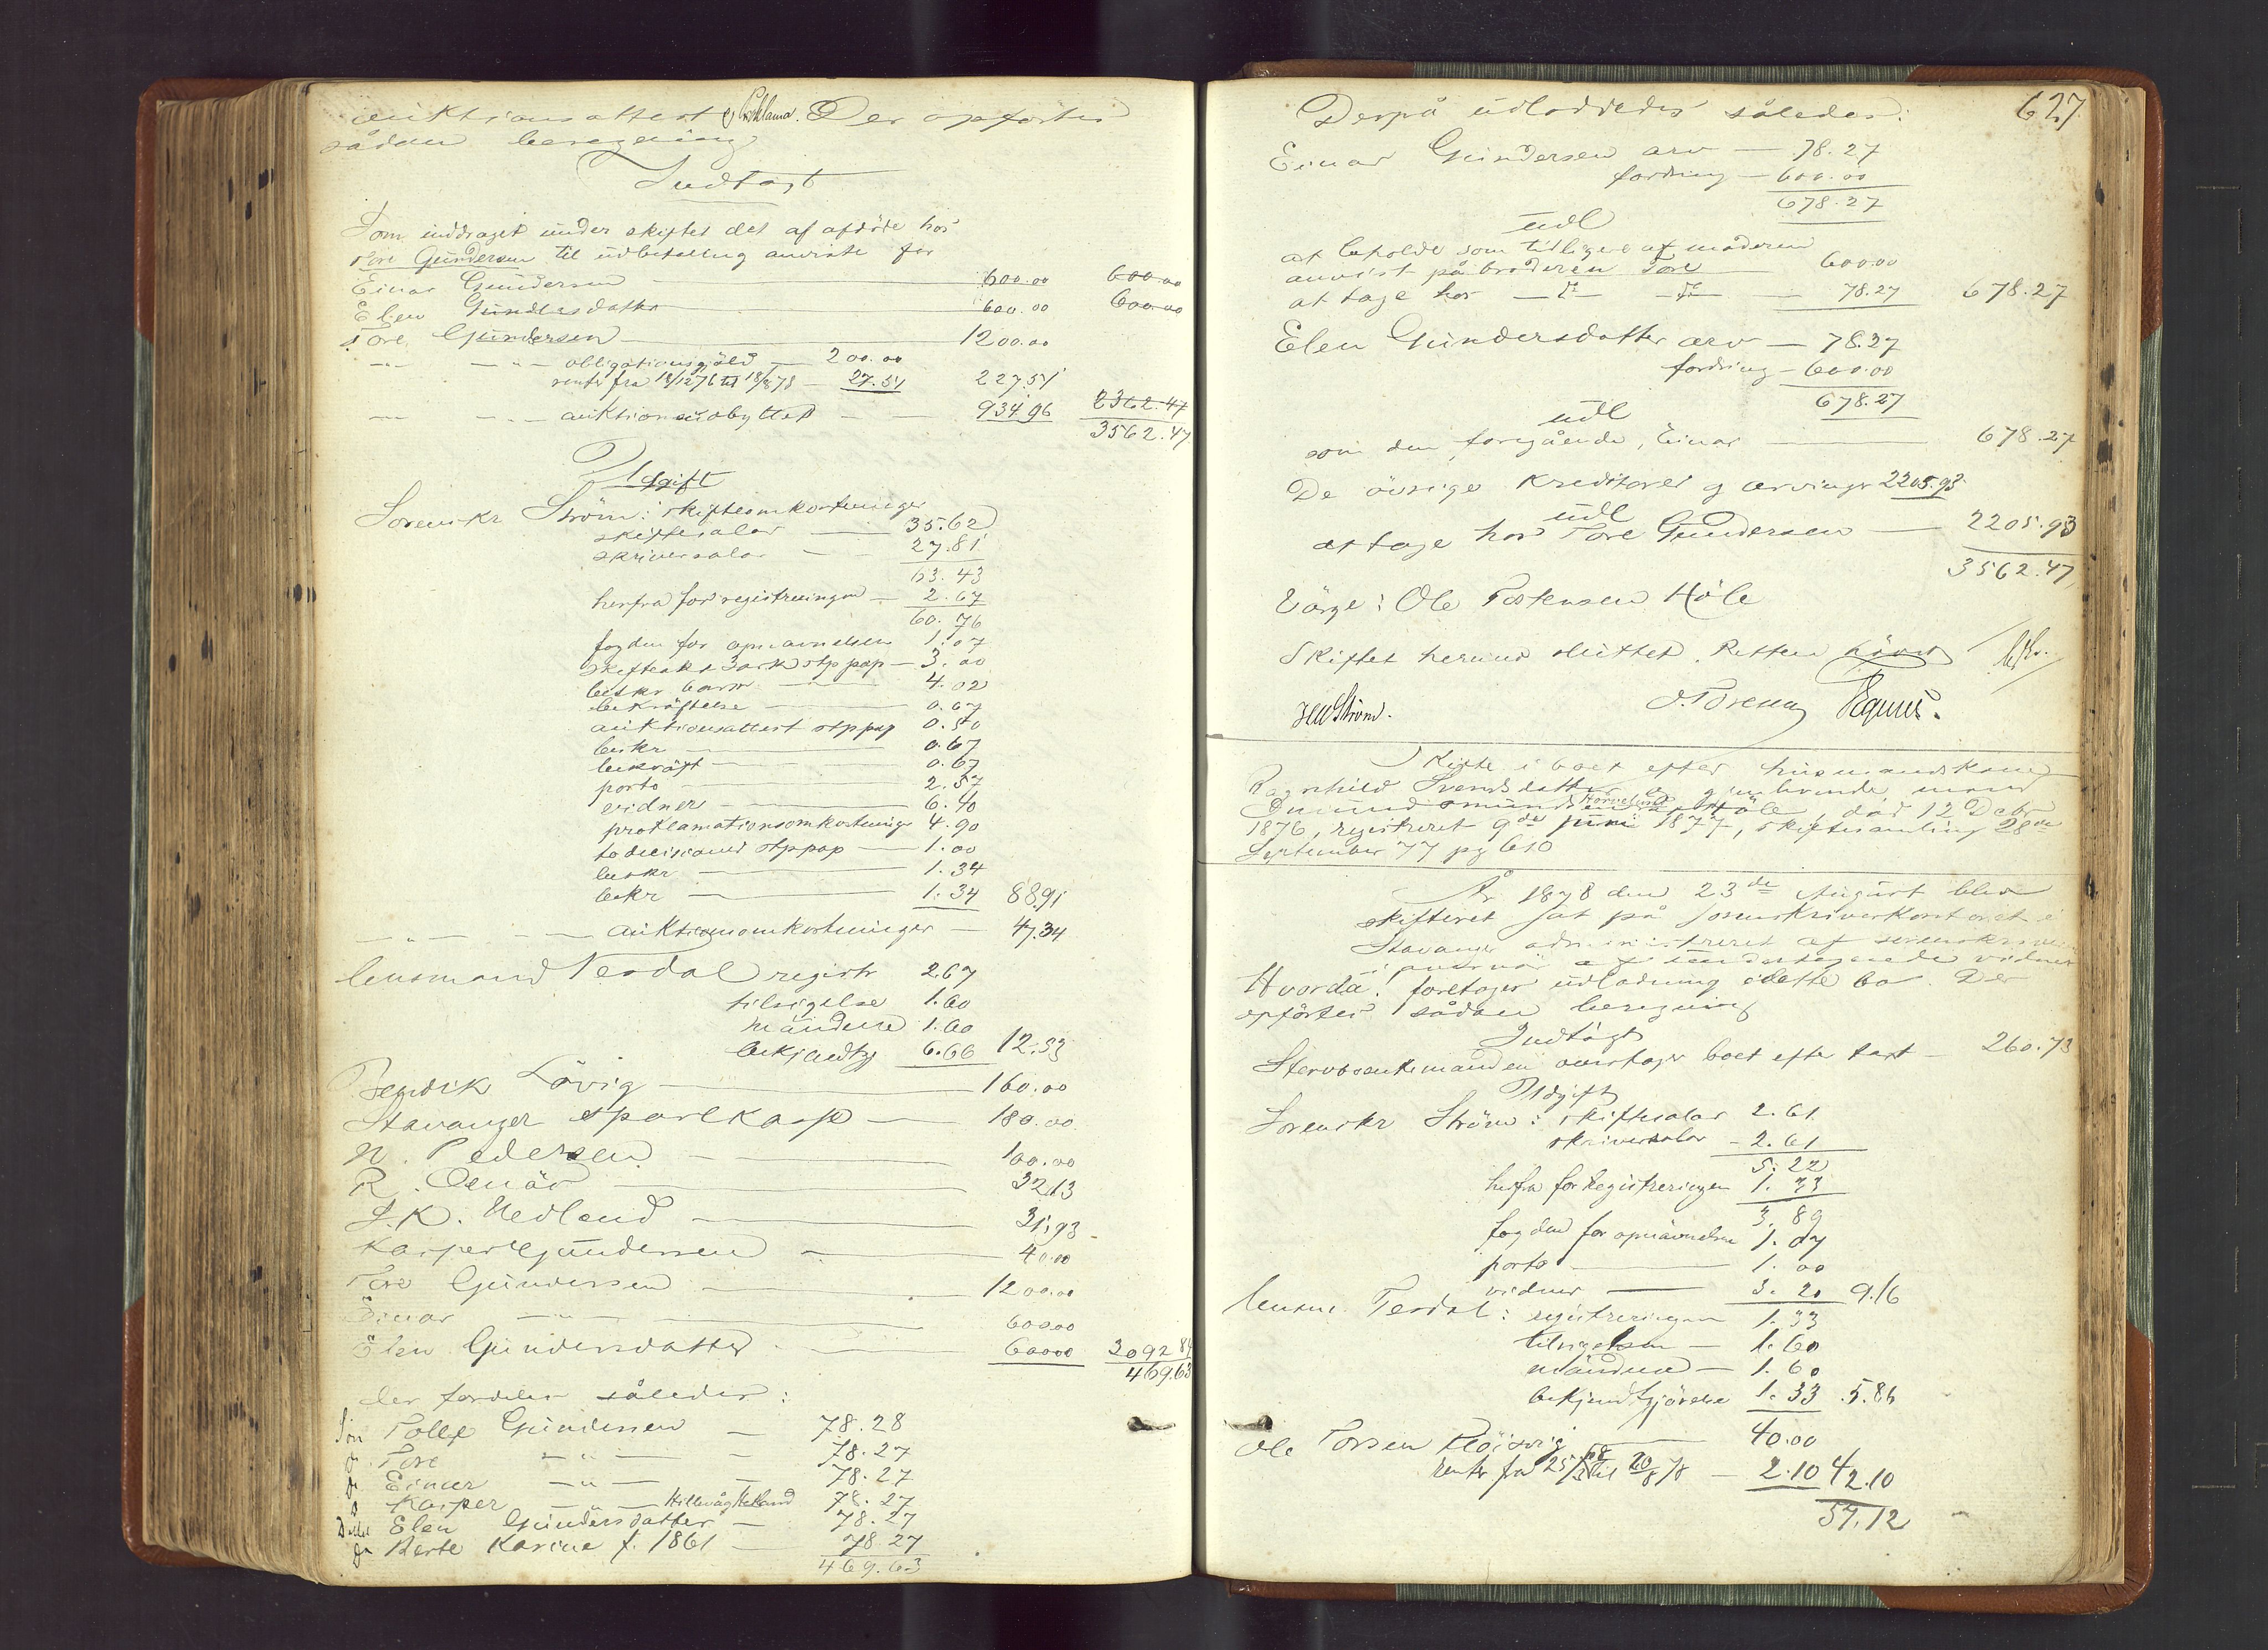 auktionsattest og Proklama. Der opførtes
sådan beregning
Indtægt
Som inddraget under skiftet det af afdöde hos
Tore Gundersen til udbetaling anviste for
Einar Gundersen 600.00 600.00
Elen Gundersdatter 600.00 600.00
Tore Gundersen 1200.00
— " — obligationsgjæld — 200.00
renter fra 18/12 76 til 18/8 78 — 27.51 227.51
— " — auktionsudbyttet — 934.96 2362.47
3562.47
Udgift
Sorenskr Ström: skifteomkostninger
skiftesalær — 35.62
skriversalær — 27.81
63.43
herfra for registreringen — 2.67
60.76
fogden for opnævnelsen 1.07
skifteakt 3 ark stp pap — 3.00
beskr 4.02
bekräftelse 0.67
auktionsattest stp pap 0.50
beskr 0.67
bekräft 0.67
porto 2.57
vidner 6.40
proklamationsomkostninger 4.90
to decisioner stp pap 1.00
beskr 1.34
bekr 1.34 88.91
— " — auktionsomkostninger — 47.34
lensmand Tesdal registr 2.67
tilsigelse 1.60
mändene 1.60
bekjendtg 6.66 12.53
Bendik Lövig 160.00
Stavanger sparekasse 180.00
N. Pedersen 100.00
R. 32.13
S. K. Hedland 31.93
Kasper Gundersen 40.00
Tore Gundersen 1200.00
Einar — " — 600.00
Elen Gundersdatter 600.00 3092.84
469.63
der fordeles således:
Sön Tollef Gundersen — 78.28
do Tore — " — 78.27
do Einar — " — 78.27
do Kasper — " — Hillevåg Hetland 78.27
Datter Elen Gundersdatter — 78.27
do Berte Karine f. 1861 — 78.27
469.63
627
Derpå udloddedes således:
Einar Gundersen arv — 78.27
fordring — 600.00
678.27
udl
at beholde som tidligere af moderen
anvist på broderen Tore 600.00
at tage hos — do — do — 78.27 678.27
Elen Gundersdatter arv — 78.27
fordring — 600.00
678.27
udl
som den foregående, Einar 678.27
De övrige kreditorer og arvinger 2205.93
udl
at tage hos Tore Gundersen — 2205.93
3562.47
Värge: Ole Torkensen Höle
Skiftet herind sluttet. Retten hävet
HW Ström.
Skifte i boet efter husmandskone
Ragnhild Svendsdatter og gjenlevende mand
Omund Omundsen Höle, död 12 Decbr
1876, registreret 9de juni 1877, skiftesamling 28de
September 77 pg 610
År 1878 den 23de August blev
skifteret sat på sorenskriverkontoret i
Stavanger administreret af sorenskriveren
i overvär af undertegnede vidner
Hvorda! foretoges udlodning i dette bo. Der
opförtes sådan beregning
Indtägt
Stervboenkemanden overtager boet efter taxt — 260.73
Udgift
Sorenskr Ström: skiftesalær 2.61
skriversalær — 2.61
5.22
herfra for Registreringen 1.33
3.89
fogden for opnävnelsen 1.07
porto 1.00
vidner 3.20 9.16
lensm. Tesdal: registreringen 1.33
tilsigelsen — 1.60
mändene — 1.60
bekjendtgjörelse 1.33 5.86
Ole Torsen 40.00
renter fra til 20/8 78 — 2.10 42.10
57.12